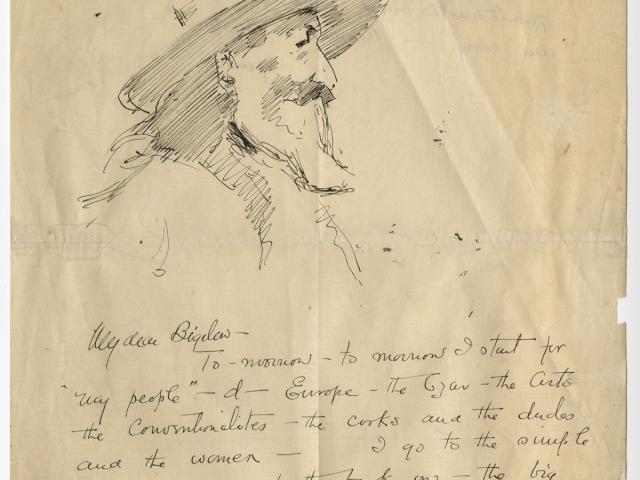 My dear Bigelow —
To-morrow - to morrow I start for
"my people" — d— Europe - the Czar - the Arts
the Conventionalities - the cooks and the dudes
and the women — I go to the simple
— the big